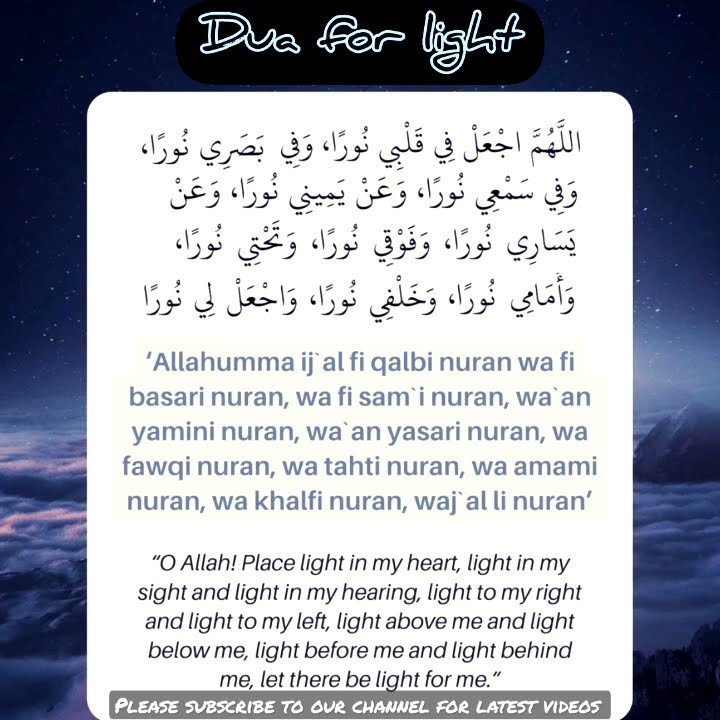 Dua for light
اللَّهُمَّ اجْعَلْ فِي قَلْبِي نُورًا، وَفِي بَصَرِي نُورًا،
وَفِي سَمْعِي نُورًا، وَعَنْ يَمِينِي نُورًا، وَعَنْ
يَسَارِي نُورًا، وَفَوْقِي نُورًا، وَتَحْتِي نُورًا،
وَأَمَامِي نُورًا، وَخَلْفِي نُورًا، وَاجْعَلْ لِي نُورًا
‘Allahumma ij`al fi qalbi nuran wa fi
basari nuran, wa fi sam`i nuran, wa`an
yamini nuran, wa`an yasari nuran, wa
fawqi nuran, wa tahti nuran, wa amami
nuran, wa khalfi nuran, waj`al li nuran’
“O Allah! Place light in my heart, light in my
sight and light in my hearing, light to my right
and light to my left, light above me and light
below me, light before me and light behind
me, let there be light for me.”
Please subscribe to our channel for latest videos